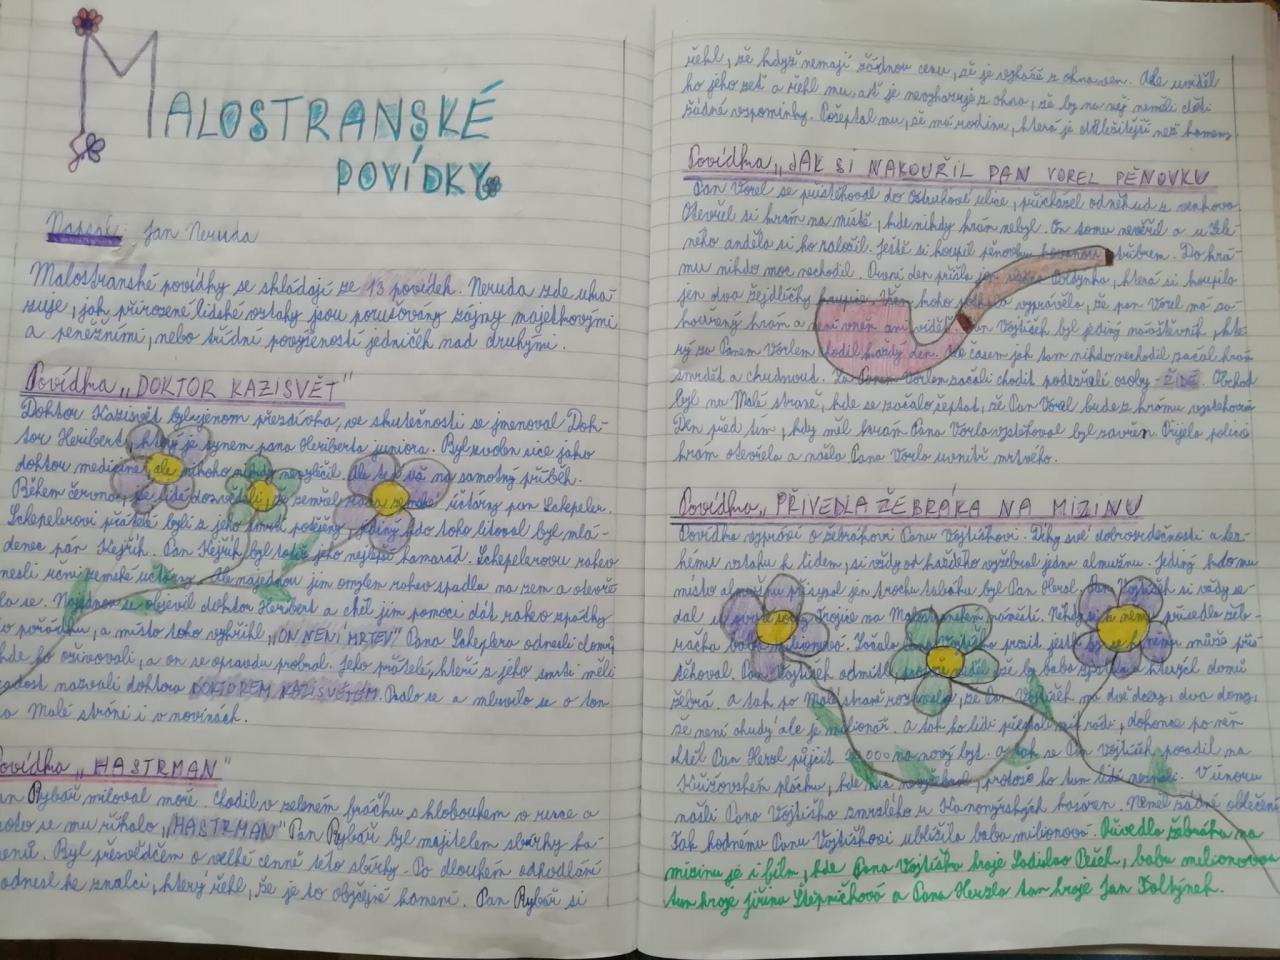 MALOSTRANSKÉ
POVÍDKY
Napsal: Jan Neruda
Malostranské povídky se skládají ze 13 povídek. Neruda zde uka-
zuje, jak přirozené lidské vztahy jsou porušovány zájmy majetkovými
a peněžními, nebo třídní povýšeností jedniček nad druhými.
Povídka „DOKTOR KAZISVĚT"
Doktor Kazisvět byla jenom přezdívka, ve skutečnosti se jmenoval Dok-
tor Heribert, který je synem pana Heriberta juniora. Byl zvolen sice jako
doktor medicine, ale nikoho nikdy nevyléčil. Ale teď už na samotný příběh.
Během června, se lidé dozvěděli, že zemřel rada zemské účtárny pan Schepeler.
Schepelerovi přátelé byli z jeho smrti potěšeny, jediný kdo toho litoval byl mlá-
denec pán Kejřík. Pan Kejřík byl totiž jeho nejlepší kamarád. Schepelerovu rakev
nesli úřední zemské účtárny. Ale najednou jim omylem rakev spadla na zem a otevře-
la se. Najednou se objevil doktor Heribert a chtěl jim pomoci dát rakev zpátky
do pořádku, a místo toho vykřikl „ON NENÍ MRTEV" Pana Schepelera odnesli domů,
kde ho oživovali, a on se opravdu probral. Jeho přátelé, kteří z jeho smrti měli
radost nazvali doktora DOKTOREM KAZISVĚTEM. Psalo se a mluvilo se o tom
na Malé straně i v novinách.
Povídka „HASTRMAN"
Pan Rybář miloval moře. Chodil v zeleném fráčku s kloboukem v ruce a
proto se mu říkalo „HASTRMAN" Pan Rybář byl majitelem sbírky ka-
menů. Byl přesvědčem o velké cenně této sbírky. Po dlouhém odhodlání
odnesl ke znalci, který řekl, že je to obyčejné kamení. Pan Rybář si
řekl, že když nemají žádnou cenu, že je vyháže z okna ven. Ale uviděl
ho jeho zeť a řekl mu, ať je nevyhazuje z okna, že by na něj neměli děti
žádné vzpomínky. Pošeptal mu, že má rodinu, která je důležitější než kameny.
Povídka „JAK SI NAKOUŘIL PAN VOREL PĚNOVKU
Pan Vorel se přistěhoval do Ostruhové ulice, přicházel odněkud z venkova.
Otevřel si krám na místě, kde nikdy krám nebyl. On tomu nevěřil a u Zele-
ného anděla si ho založil. Ještě si koupil pěnovku kovanou stříbrem. Do krá-
mu nikdo moc nechodil. První den přišla jen slečna Poldynka, která si koupila
jen dva žejdlíčky krupice. Všem koho potkala vyprávěla, že pan Vorel má za-
kouřený krám a není v něm ani vidět. Pan Vojtíšek byl jediný návštěvník, kte-
rý za Panem Vorlem chodil každý den. Ale časem jak tam nikdo nechodil začal krám
smrdět a chudnout. Za Panem Vorlem začali chodit podezřelí osoby - ŽIDÉ. Obchod
byl na Malé straně, kde se začalo šeptat, že Pan Vorel bude z krámu vystěhován.
Den před tím, kdy měl krám Pana Vorla vystěhovat byl zavřen. Přijela policie
krám otevřela a našla Pana Vorla uvnitř mrtvého.
Povídka „PŘIVEDLA ŽEBRÁKA NA MIZINU
Povídka vypráví o žebrákovi Panu Vojtíškovi. Díky své dobrosrdečnosti a hez-
kému vztahu k lidem, si vždy od každého vyžebral jednu almužnu. Jediný kdo mu
místo almužnu přisypal jen trochu tabáku byl Pan Herzl. Pan Vojtíšek si vždy se-
dal u svaté trojice na Malostranském náměstí. Někdy si k němu přisedla žeb-
račka baba milionová. Začala Vojtíška prosit jestli by se k němu může při-
stěhovat. Pan Vojtíšek odmítl
žebrá. A tak po Malé straně rozneslo, že Pan Vojtíšek má dvě dcery, dva domy,
že není chudý ale je milionář. A tak ho lidi přestali mít rádi, dokonce po něm
chtěl Pan Herzl půjčit 2000 na nový byt. A tak se Pan Vojtíšek posadil na
Křižovském plácku, kde nic nevyžebral, protože ho tam lidé neznali. V únoru
našli Pana Vojtíška zmrzlého u Kanonýrských kasáren. Neměl žádné oblečení.
Tak hodnému Panu Vojtíškovi ublížila baba milionová. Přivedla žebráka na
mizinu je i film, kde Pana Vojtíška hraje Ladislav Pešek, babu milionovou
tam hraje Jiřina Štěpničková a Pana Herzla tam hraje Jan Foltýnek.